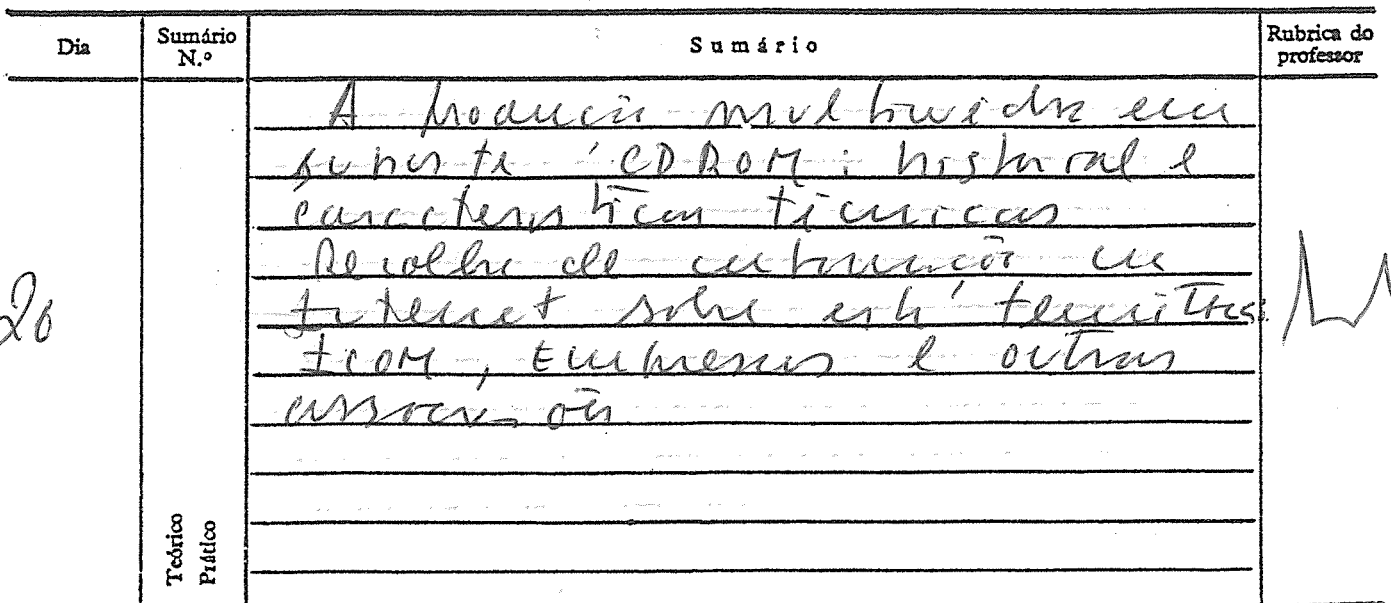 Dia
Sumário N.º
Sumário
Rubrica do professor
A produção multimédia em
suporte CDROM: historial e
características técnicas
Recolha de informação na
Internet sobre esta
ICOM, Empresas e outras
associações
20
Teórico
Prático